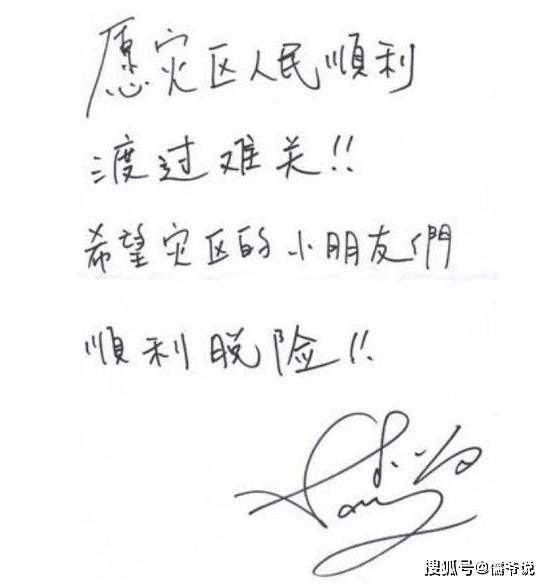 愿灾区人民順利
渡过难关!!
希望灾区的小朋友们
順利脱险!!
搜狐号@儒爷说